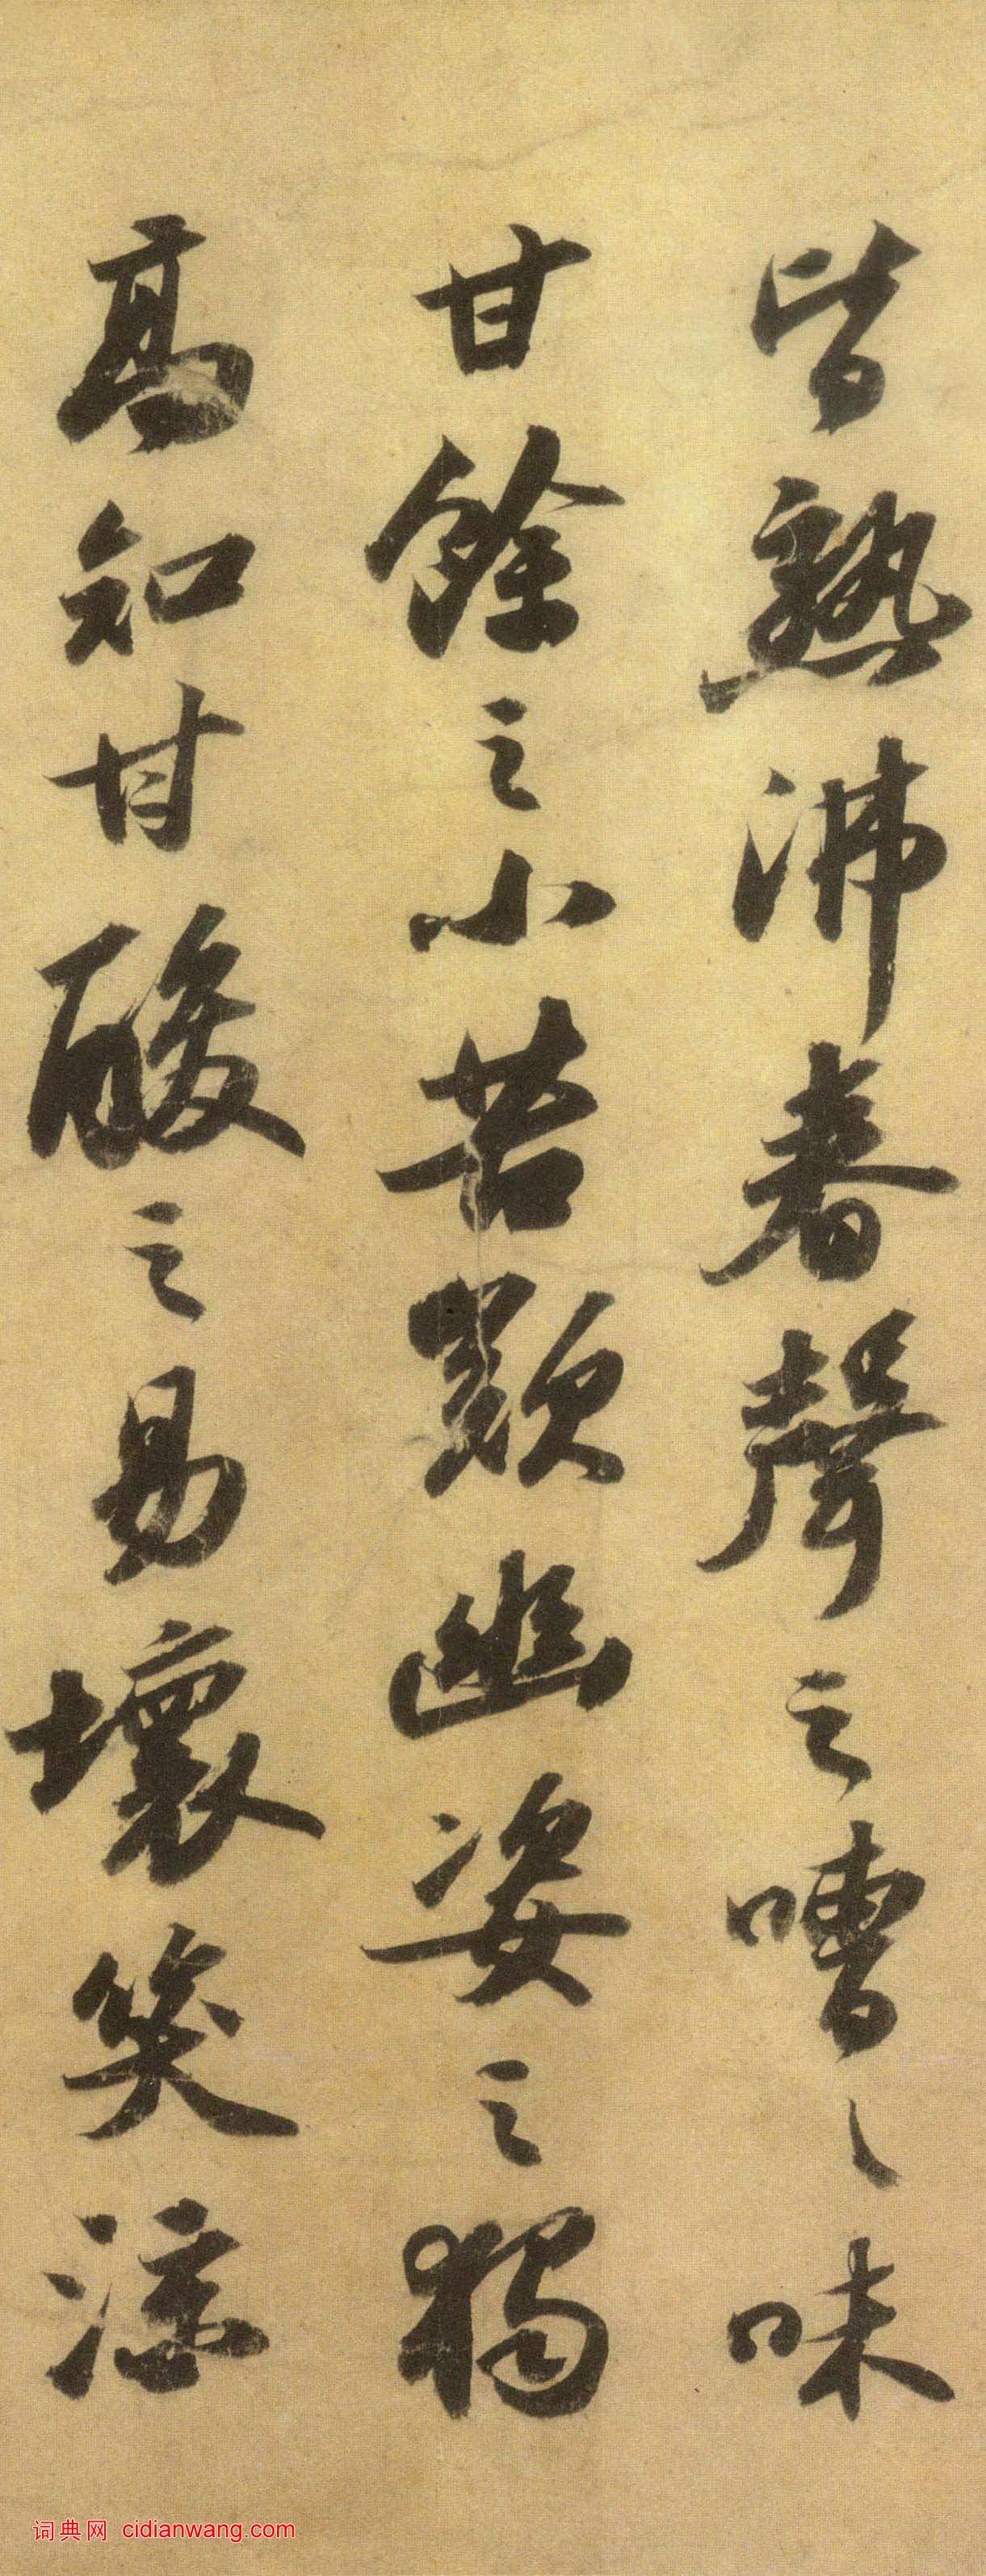 皆熟沸春聲之嘈〻味
甘餘之小苦歎幽姿之獨
高知甘酸之易壞笑涼
词典网 cidianwang.com